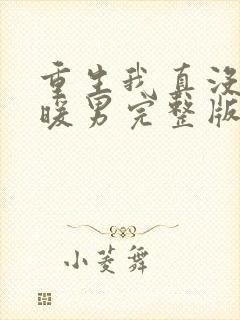 重生我真没
暖男完整版
小菱舞